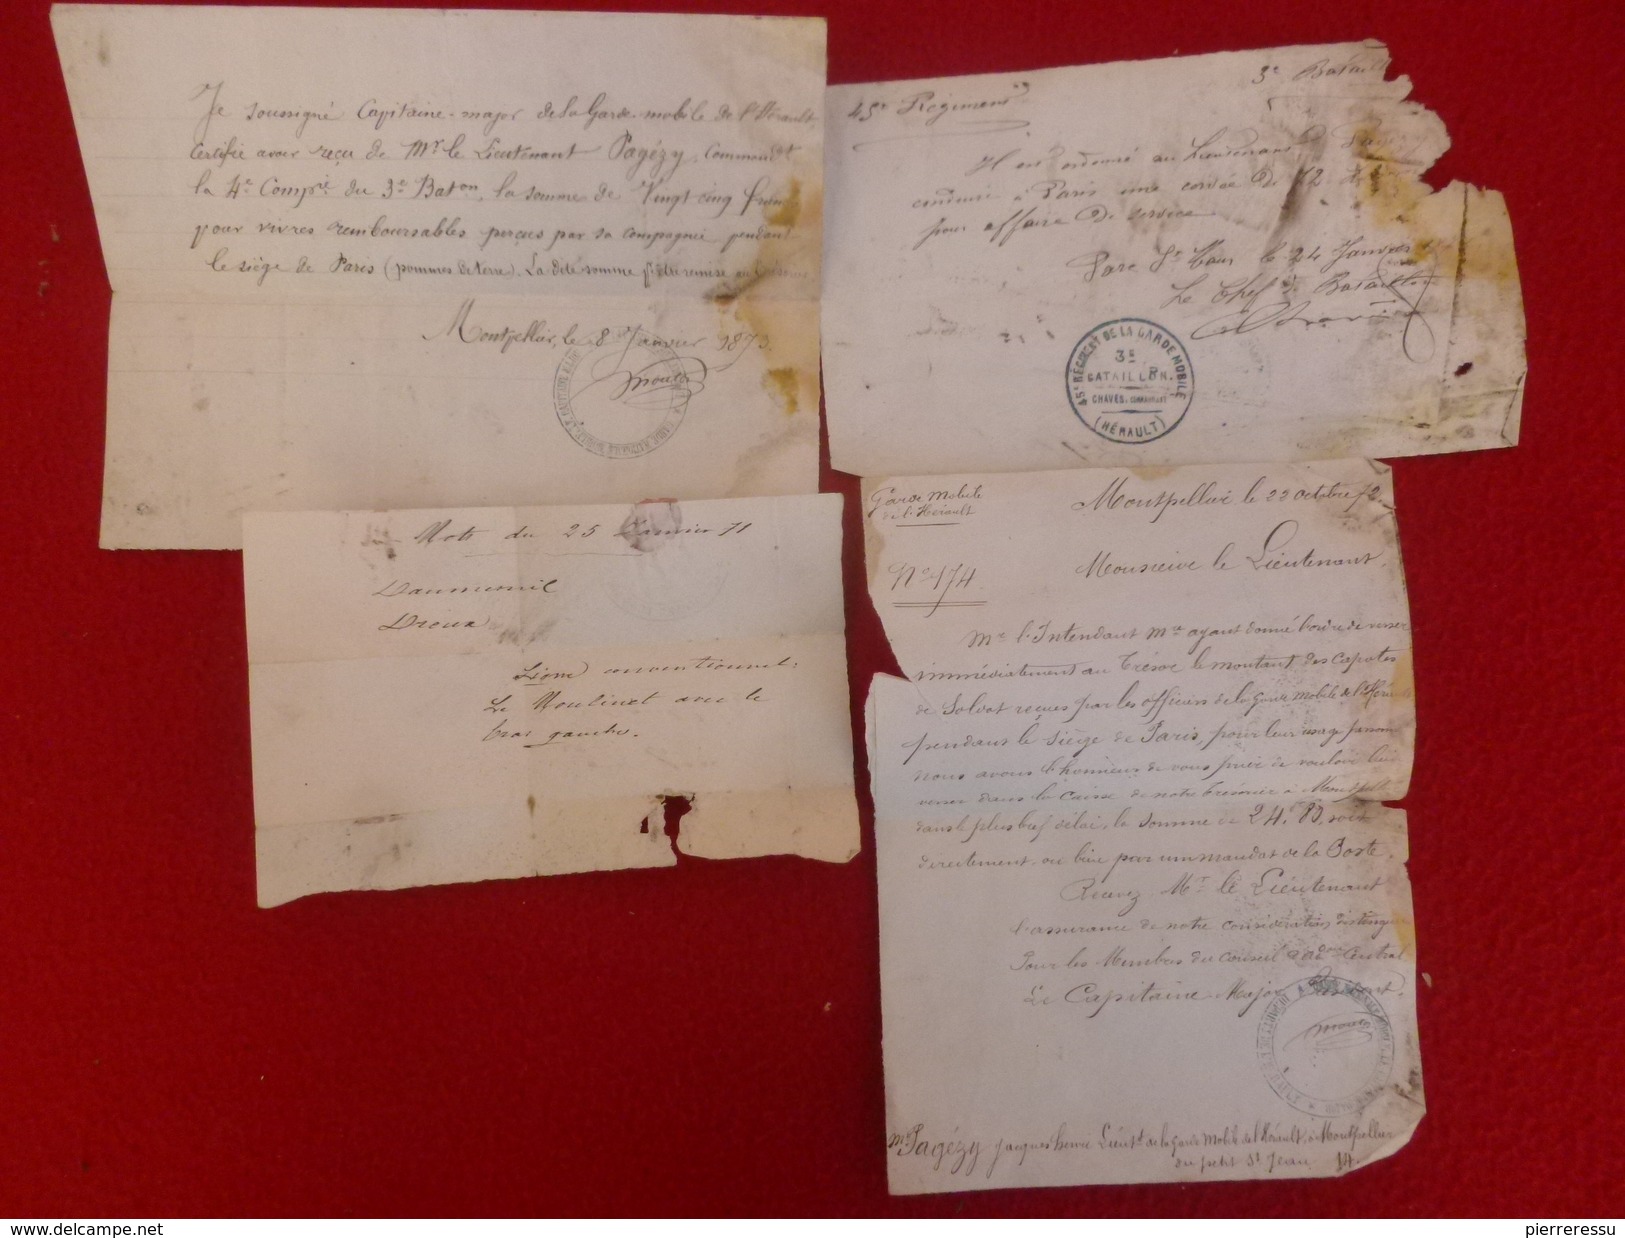 Je soussigné Capitaine-major de la Garde mobile de l'Hérault
Certifie avoir reçu de Mr le Lieutenant Pagézy, Commandt
la 4e Compie du 3e Baton, la somme de Vingt cinq francs
pour vivres remboursables perçus par sa compagnie pendant
le siège de Paris (pommes de terre). La dite somme pr être remise au
Montpellier, le 8 Janvier 1873.
45e Régiment
3e Bataill
Il est ordonné au Lieutenant Pagézy
conduire à Paris une corvée de 12
pour affaire de service
Parc St Maur le 24 Janvier
Le Chef de Bataillon
45E RÉGIMENT DE LA GARDE MOBILE
3E
BATAILLON.
CHAVES, COMMANDANT
(HÉRAULT)
Mots du 25 Janvier 71
Daumesnil
Dreux
Signe conventionnel:
Le Moulinet avec le
bras gauche.
Garde Mobile
de l'Hérault
Montpellier le 22 octobre 72.
No 174.
Monsieur le Lieutenant,
Mr l'Intendant Mre ayant donné l'ordre de verser
immédiatement au Trésor le montant des Capotes
de Soldat reçues par les officiers de la Garde Mobile de l'Hérault
pendant le siège de Paris, pour leur usage
nous avons l'honneur de vous prier de vouloir bien
verser dans la Caisse de notre trésorier à Montpellr
dans le plus bref délai, la somme de 24.80, soit
directement, ou bien par un mandat de la Poste.
Recevez Mr le Lieutenant
l'assurance de notre considération distinguée
Pour les Membres du Conseil d'Adon Central
Le Capitaine Major Président.
Mr Pagézy Jacques henri Lieutt de la Garde Mobile de l'Hérault, à Montpellier
du petit St Jean 14.
delcampe.net
pierreressu